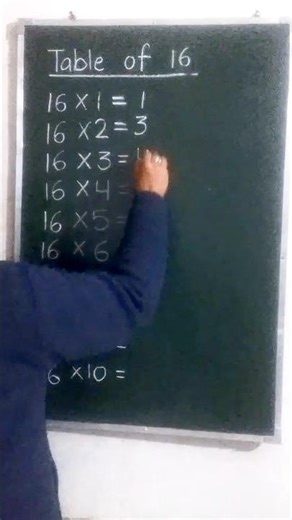 Table of 16
16 × 1 = 1
16 × 2 = 3
16 × 3 = 4
16 × 4 =
16 × 5 =
16 × 6
6 × 10 =